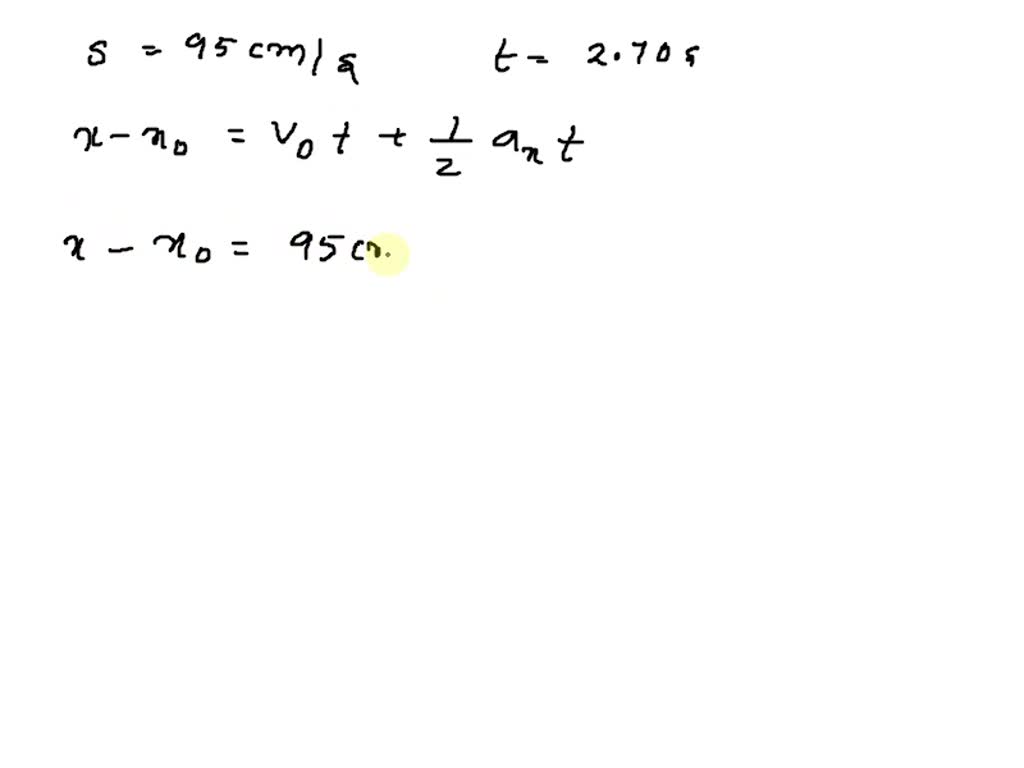 s = 95 cm/s t = 2.70 s
x - x₀ = V₀ t + 1/2 aₓ t
x - x₀ = 95 cm